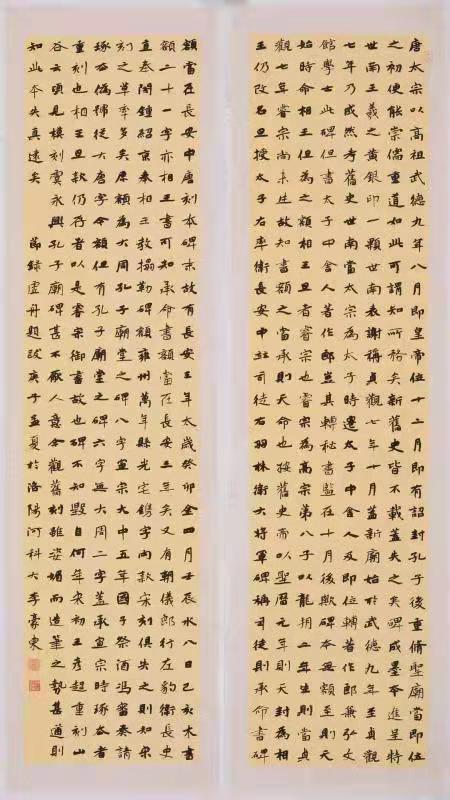 唐太宗以高祖武德九年八月即皇帝位十二月即有詔封孔子後重脩聖廟當即位
之初便能崇儒重道如此可謂知所務矣新舊史皆不載蓋失之矣碑成墨本進呈特
世南王羲之黃銀印一顆世南表謝稱貞觀七年十月蓋新廟始於武德九年至貞觀
七年乃成然考舊史世南當太宗為太子時遷太子中舍人及即位轉著作郎兼弘文
館學士此碑但書太子中舍人著作郎豈其轉秘書監在十月後歟碑本無額至則天
始時命相王旦為之額相王旦者睿宗也睿宗為高宗第八子以龍朔二年生則當貞
觀七年睿宗尚未生故知書額之當承則天命也按舊史帝以聖曆元年則天封為相
王仍改名旦授太子右率衛長安中拜司徒右羽林衛大將軍碑稱司徒則承命書碑
額當在長安中唐刻本碑末故有長安三年太歲癸卯金四月壬辰水八日己亥木書
額二十一字亦相王書可知承命書額當在長安三年矣又有朝儀郎行左豹衛長史
直秦閣鐘紹京奉相王教搨勒碑額雍州萬年縣光宅鐫字兩款宋刻俱失之則知宋
刻之草率多矣原額為大周孔子廟堂之碑八字宣宗大中五年國子祭酒馮審奏請
琢去偽號從大唐字今額但有孔子廟堂之碑六字無大周二字蓋承宣宗時琢去者
重刻也相王旦款仍存者以是睿宗御書故也碑不知毀自何年宋初王彥超重刻山
谷云頃見摸刻虞永興孔子廟碑甚不厭人意今觀舊刻雖姿媚而造筆之勢甚遒則
知此本失真遠矣 節錄虛舟題跋庚子孟夏於洛陽河科大李豪東